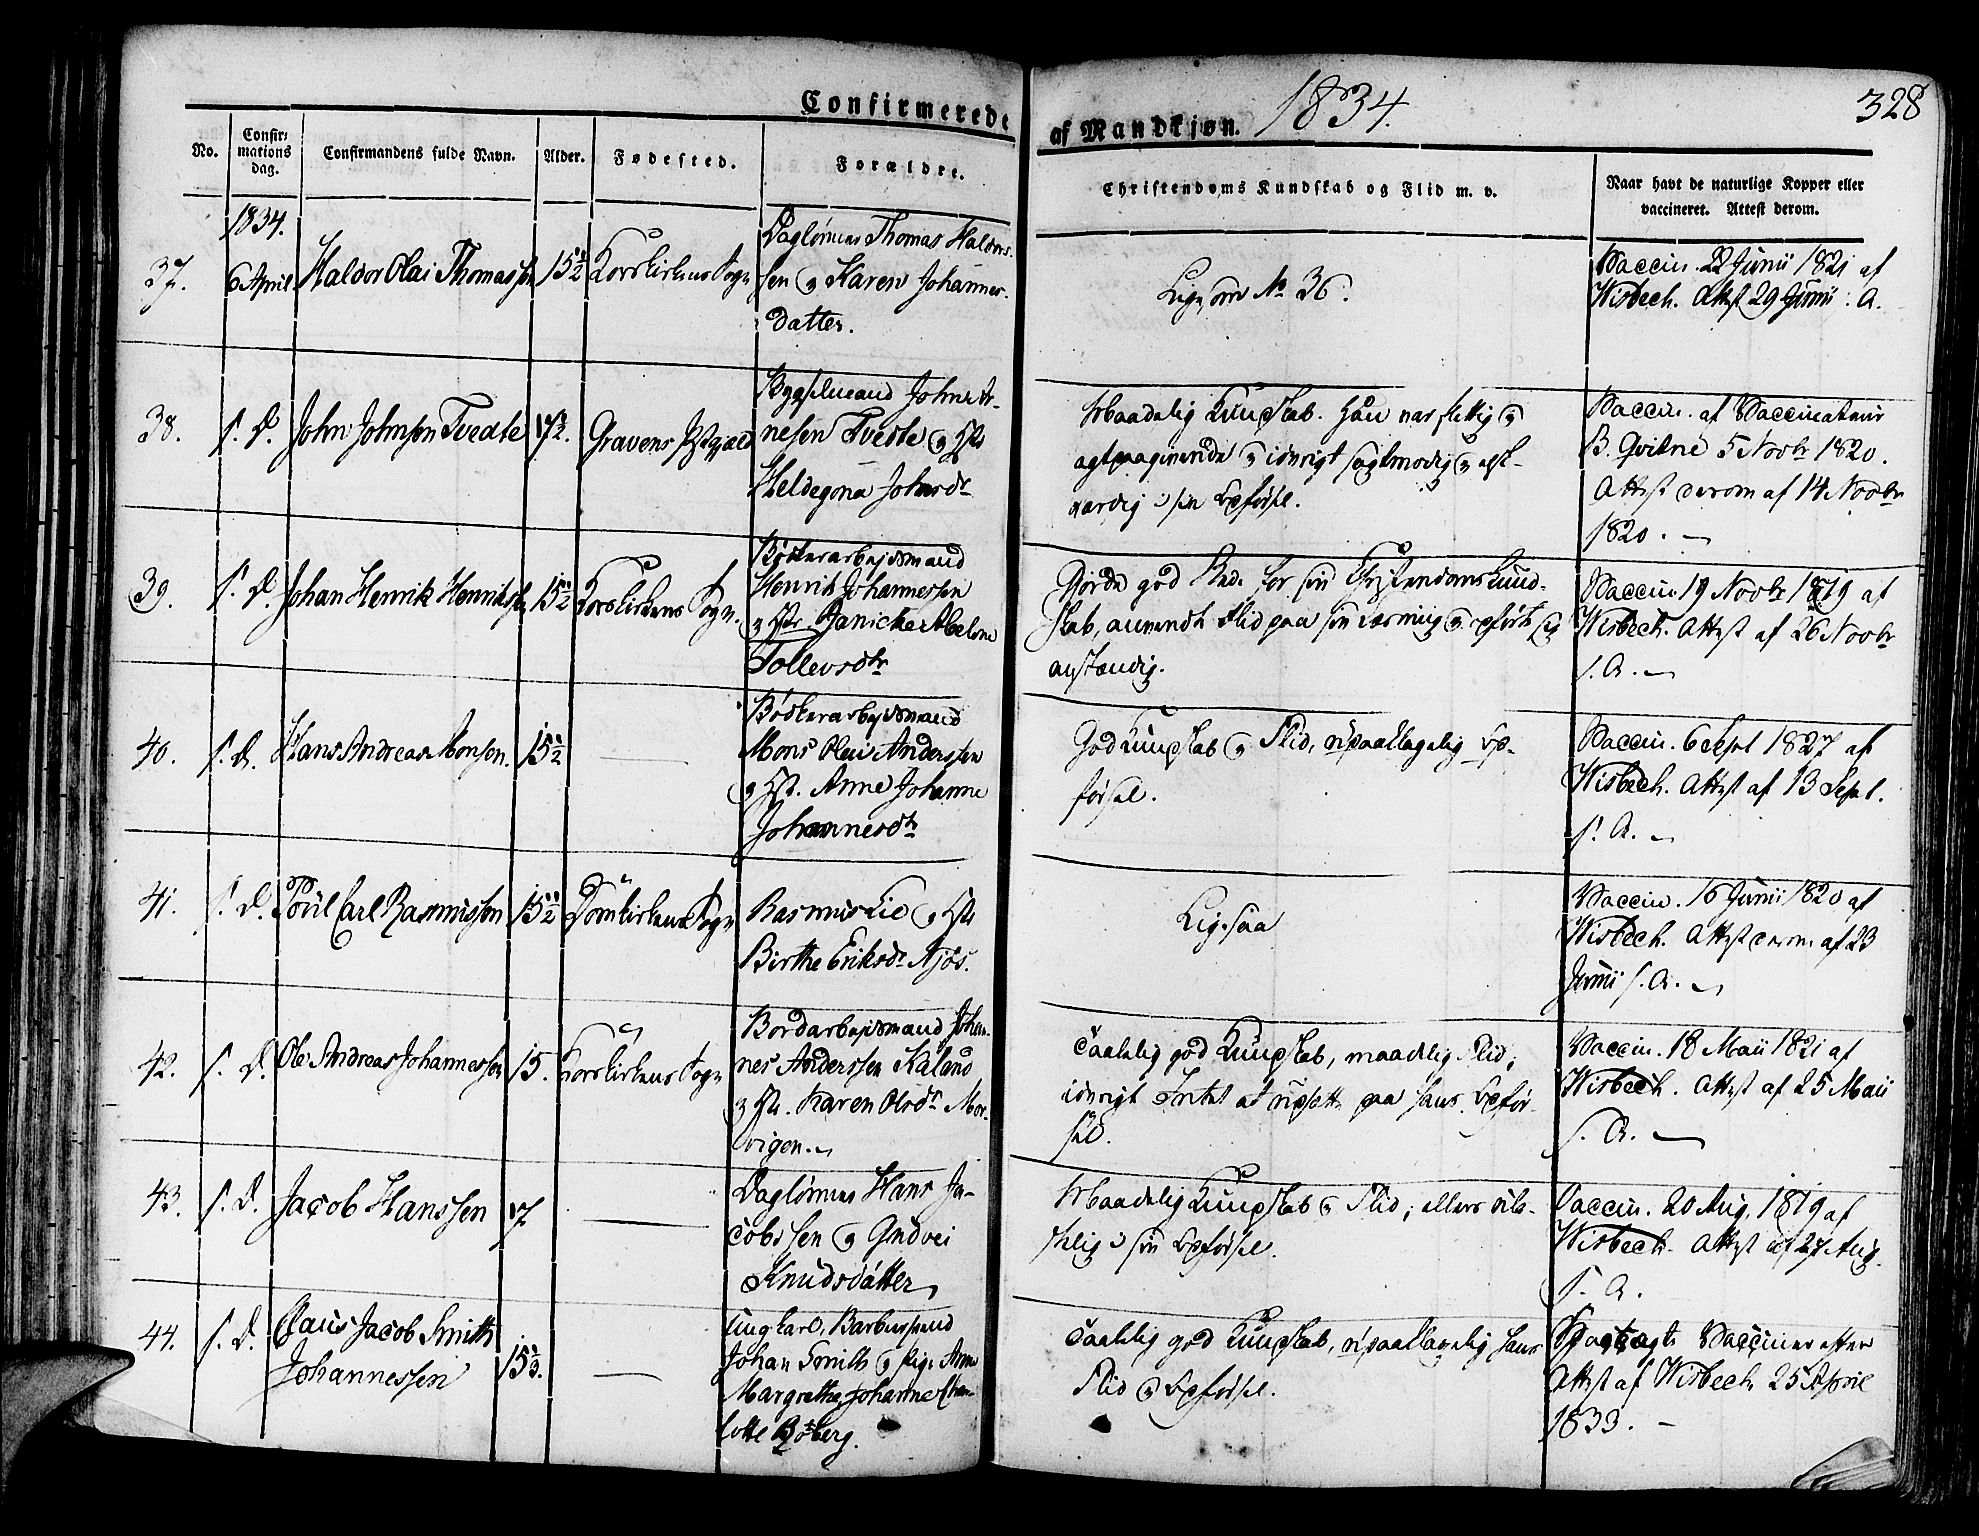 Confirmerede
af Mandkjøn. 1834.
328
No.
Confir-
mations
dag.
Confirmandens fulde Navn.
Alder.
Fødested.
Forældre.
Christendoms Kundskab og Flid m. v.
Naar havt de naturlige Kopper eller
vaccineret. Attest derom.
1834.
37.
6 April
Haldor Olai Thomassen
15½
Korskirkens Sogn
Dagløniner Thomas Haldors-
sen og Karen Johannes-
datter.
Ligesom No 36.
Vaccin. 22 Junii 1821 af
Wisbech. Attest 29 Junii s. A.
38.
s. D.
John Johnsen Tvedte
17½.
Gravens Pstgjæld
Bygselmand John Ar-
nesen Tvedte og Hst
Heldegona Johnsdr
Maadelig Kundskab. Han var flittig og
agtpaagivende og iøvrigt sagtmodig og
værdig i sin Opførsel.
Vaccin. af Vaccinateur
B. Qvitne 5 Novbr 1820.
Attest derom af 14 Novbr
1820. —
39.
s. D.
Johan Henrik Henriksen
15½
Korskirkens Sogn.
Bødkerarbejdsmand
Henrik Johannessen
og Hst. Janicke Abelone
Tollevsdtr
Gjorde god Rede for sin Christendomskund-
skab, anvendte Flid paa sin Lærning og opførte sig
anstændig.
Vaccin. 19 Novbr 1819 af
Wisbech. Attest af 26 Novbr
s. A. —
40.
s. D.
Hans Andreas Monsen.
15½
—
Bødkerarbejdsmand
Mons Olai Anderssen
og Hst. Anne Johanne
Johannesdtr
God Kundskab og Flid, upaaklagelig Op-
førsel.
Vaccin. 6 Sept 1827 af
Wisbech. Attest af 13 Sept.
s. A. —
41.
s. D.
Poul Carl Rasmussen
15½
Domkirkens Sogn
Rasmus Lie og Hst
Birthe Eriksdr Njøs.
Ligesaa
Vaccin. 16 Junii 1820 af
Wisbech. Attest derom af 23
Junii s. A. —
42.
s. D.
Ole Andreas Johannessen
15.
Korskirkens Sogn
Bordarbejdsmand Johan-
nes Anderssen Kaland
og Hst. Karen Olsdr Mor-
vigen.
Taalelig god Kundskab, maadelig Flid;
iøvrigt Intet at udsætte paa hans Opfør-
sel.
Vaccin. 18 Maii 1821 af
Wisbech. Attest af 25 Maii
s. A. —
43.
s. D.
Jacob Hanssen
17
—
Dagløniner Hans Ja-
cobssen og Gudvei
Knudsdatter
Maadelig Kundskab og Flid; ellers
skelig i sin Opførsel.
Vaccin. 20 Aug. 1819 af
Wisbech. Attest af 27 Aug.
s. A.
44.
s. D.
Claus Jacob Smith
Johannessen
15¾.
—
Ungkarl, Barbersvend
Johan Smith og Pige Anne
Margrethe Johanne Char-
lotte Boberg.
Taalelig god Kundskab, upaaklagelig hans
Flid og Opførsel.
Vaccineret efter
Attest af Wisbech 25 April
1833. —